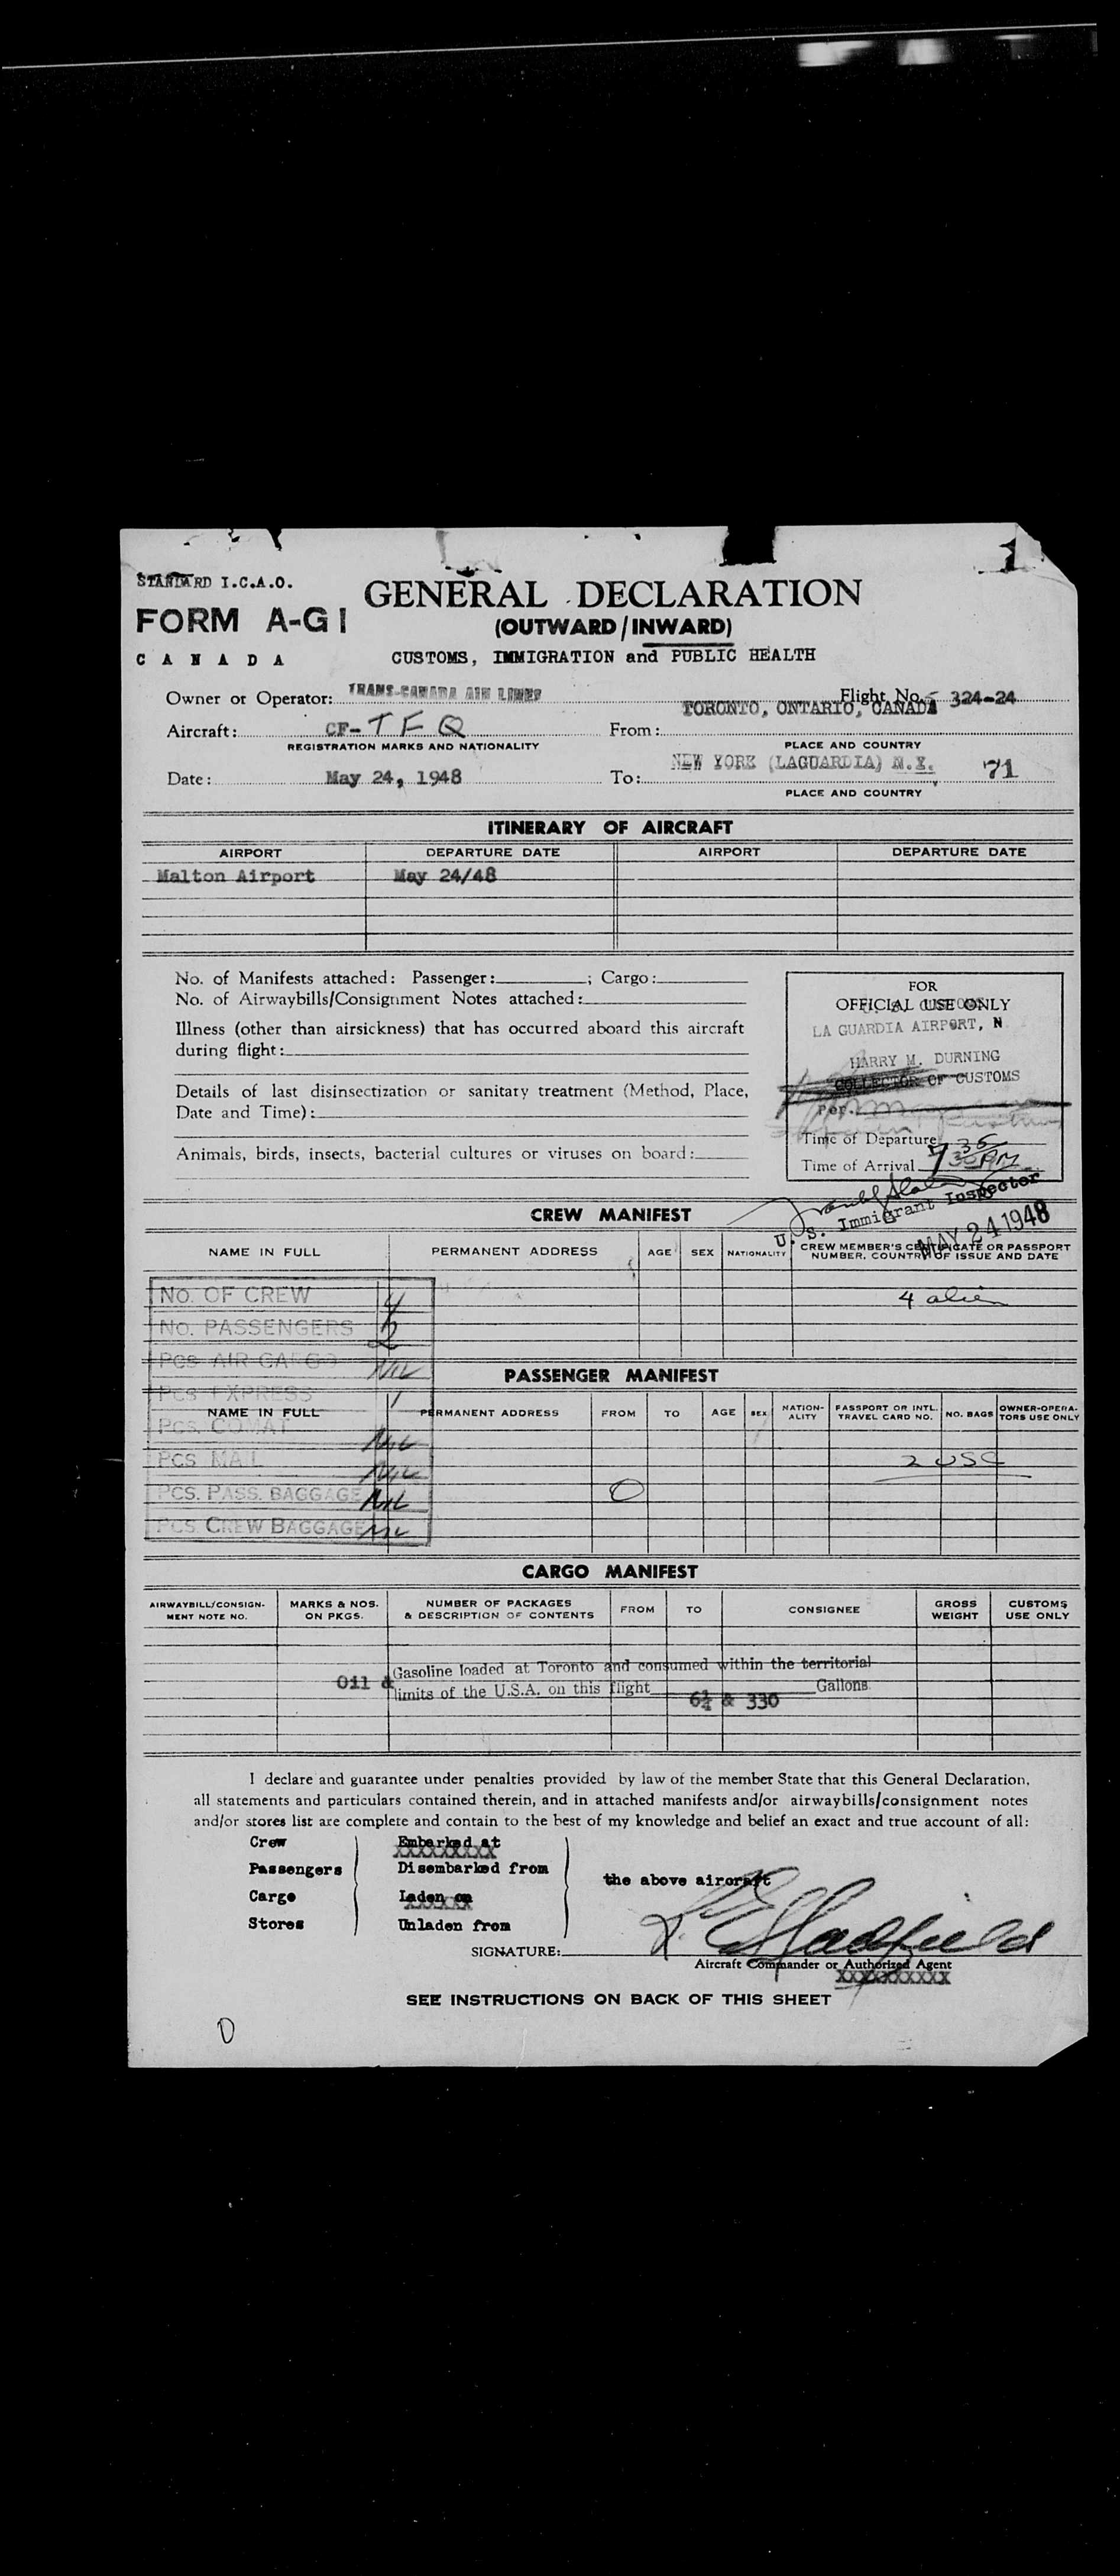 1
STANDARD I.C.A.O.
FORM A-G1
CANADA
GENERAL DECLARATION
(OUTWARD/INWARD)
CUSTOMS, IMMIGRATION and PUBLIC HEALTH
Owner or Operator: TRANS-CANADA AIR LINES Flight No. 324-24
Aircraft: CF-TFQ From: TORONTO, ONTARIO, CANADA
REGISTRATION MARKS AND NATIONALITY PLACE AND COUNTRY
Date: May 24, 1948 To: NEW YORK (LAGUARDIA) N.Y. 71
PLACE AND COUNTRY
ITINERARY OF AIRCRAFT
AIRPORT DEPARTURE DATE AIRPORT DEPARTURE DATE
Malton Airport May 24/48
No. of Manifests attached: Passenger: ; Cargo:
No. of Airwaybills/Consignment Notes attached:
Illness (other than airsickness) that has occurred aboard this aircraft
during flight:
Details of last disinsectization or sanitary treatment (Method, Place,
Date and Time):
Animals, birds, insects, bacterial cultures or viruses on board:
FOR
OFFICIAL USE ONLY
LA GUARDIA AIRPORT, N
HARRY M. DURNING
COLLECTOR OF CUSTOMS
Per.
Time of Departure
Time of Arrival 7 35 PM
U. S. Immigrant Inspector
MAY 24 1948
CREW MANIFEST
NAME IN FULL PERMANENT ADDRESS AGE SEX NATIONALITY CREW MEMBER'S CERTIFICATE OR PASSPORT NUMBER, COUNTRY OF ISSUE AND DATE
4 alien
NO. OF CREW 4
NO. PASSENGERS 2
PCS AIR CARGO NIL
PCS EXPRESS 1
PCS. COMAT NIL
PCS MAIL NIL
PCS. PASS. BAGGAGE NIL
PCS CREW BAGGAGE NIL
PASSENGER MANIFEST
NAME IN FULL PERMANENT ADDRESS FROM TO AGE SEX NATION-ALITY PASSPORT OR INTL. TRAVEL CARD NO. NO. BAGS OWNER-OPERA-TORS USE ONLY
2 USC
O
CARGO MANIFEST
AIRWAYBILL/CONSIGN-MENT NOTE NO. MARKS & NOS. ON PKGS. NUMBER OF PACKAGES & DESCRIPTION OF CONTENTS FROM TO CONSIGNEE GROSS WEIGHT CUSTOMS USE ONLY
Oil & Gasoline loaded at Toronto and consumed within the territorial
limits of the U.S.A. on this flight 6¼ & 330 Gallons
I declare and guarantee under penalties provided by law of the member State that this General Declaration,
all statements and particulars contained therein, and in attached manifests and/or airwaybills/consignment notes
and/or stores list are complete and contain to the best of my knowledge and belief an exact and true account of all:
Crew Embarked at
Passengers Disembarked from
the above aircraft
Cargo Laden on
Stores Unladen from
SIGNATURE: L. E. Hadfield
Aircraft Commander or Authorized Agent
XXXXXXXXXX
SEE INSTRUCTIONS ON BACK OF THIS SHEET
D